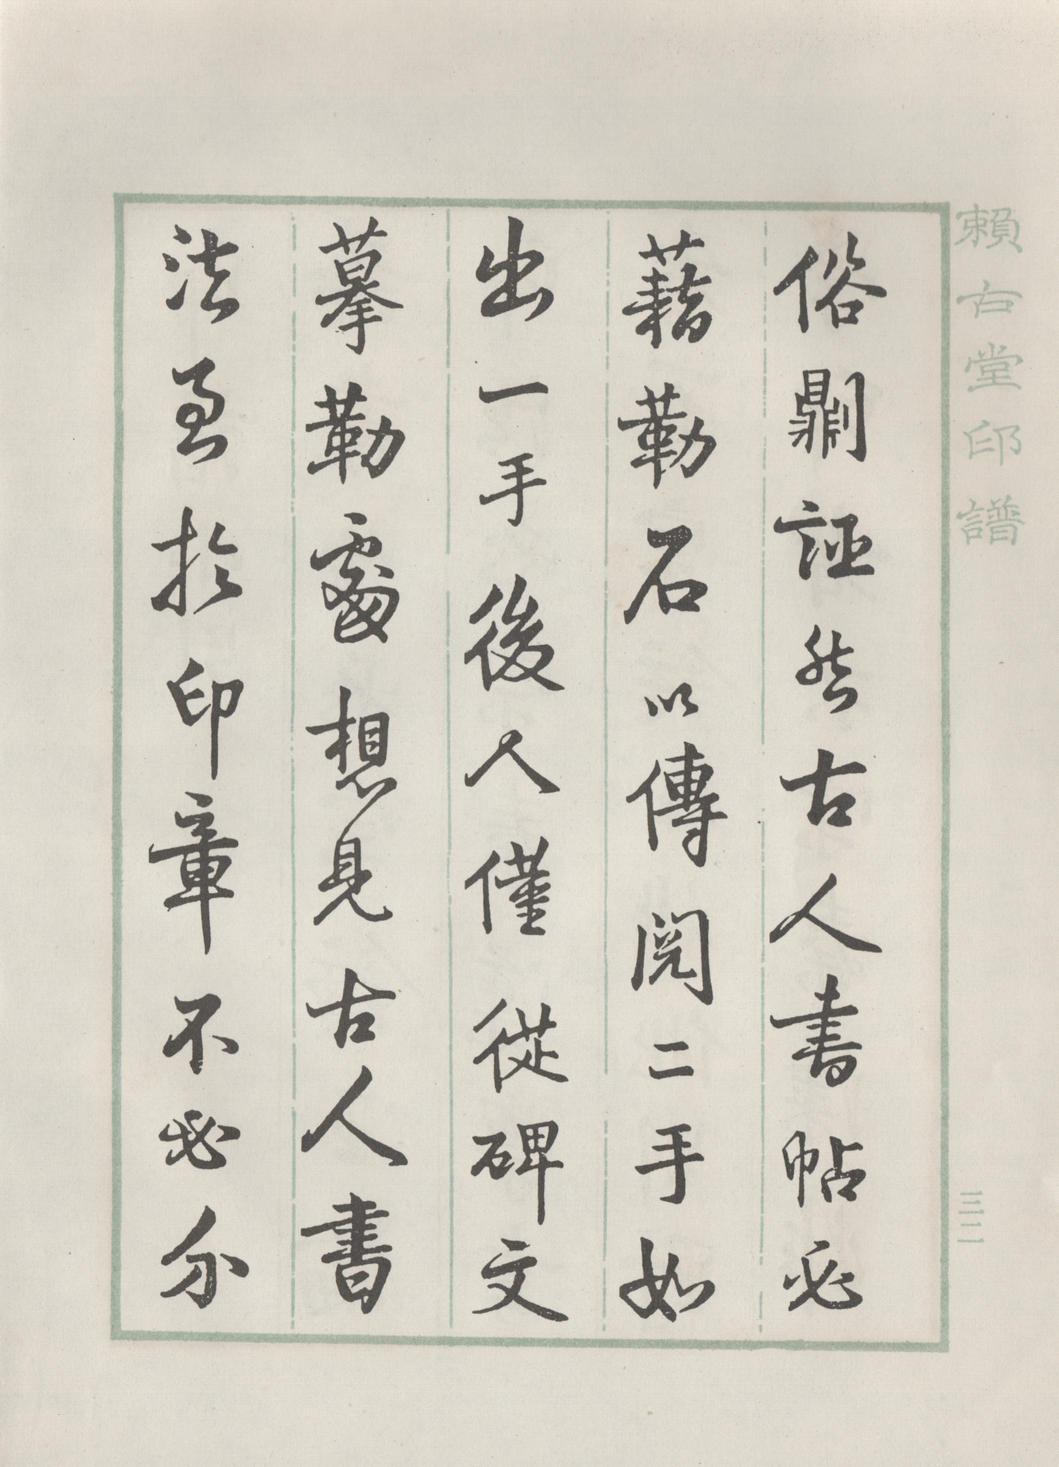 賴古堂印譜
三二
俗劘誣然古人書帖必
藉勒石以傳閱二手如
出一手後人僅從碑文
摹勒處想見古人書
法至於印章不必分